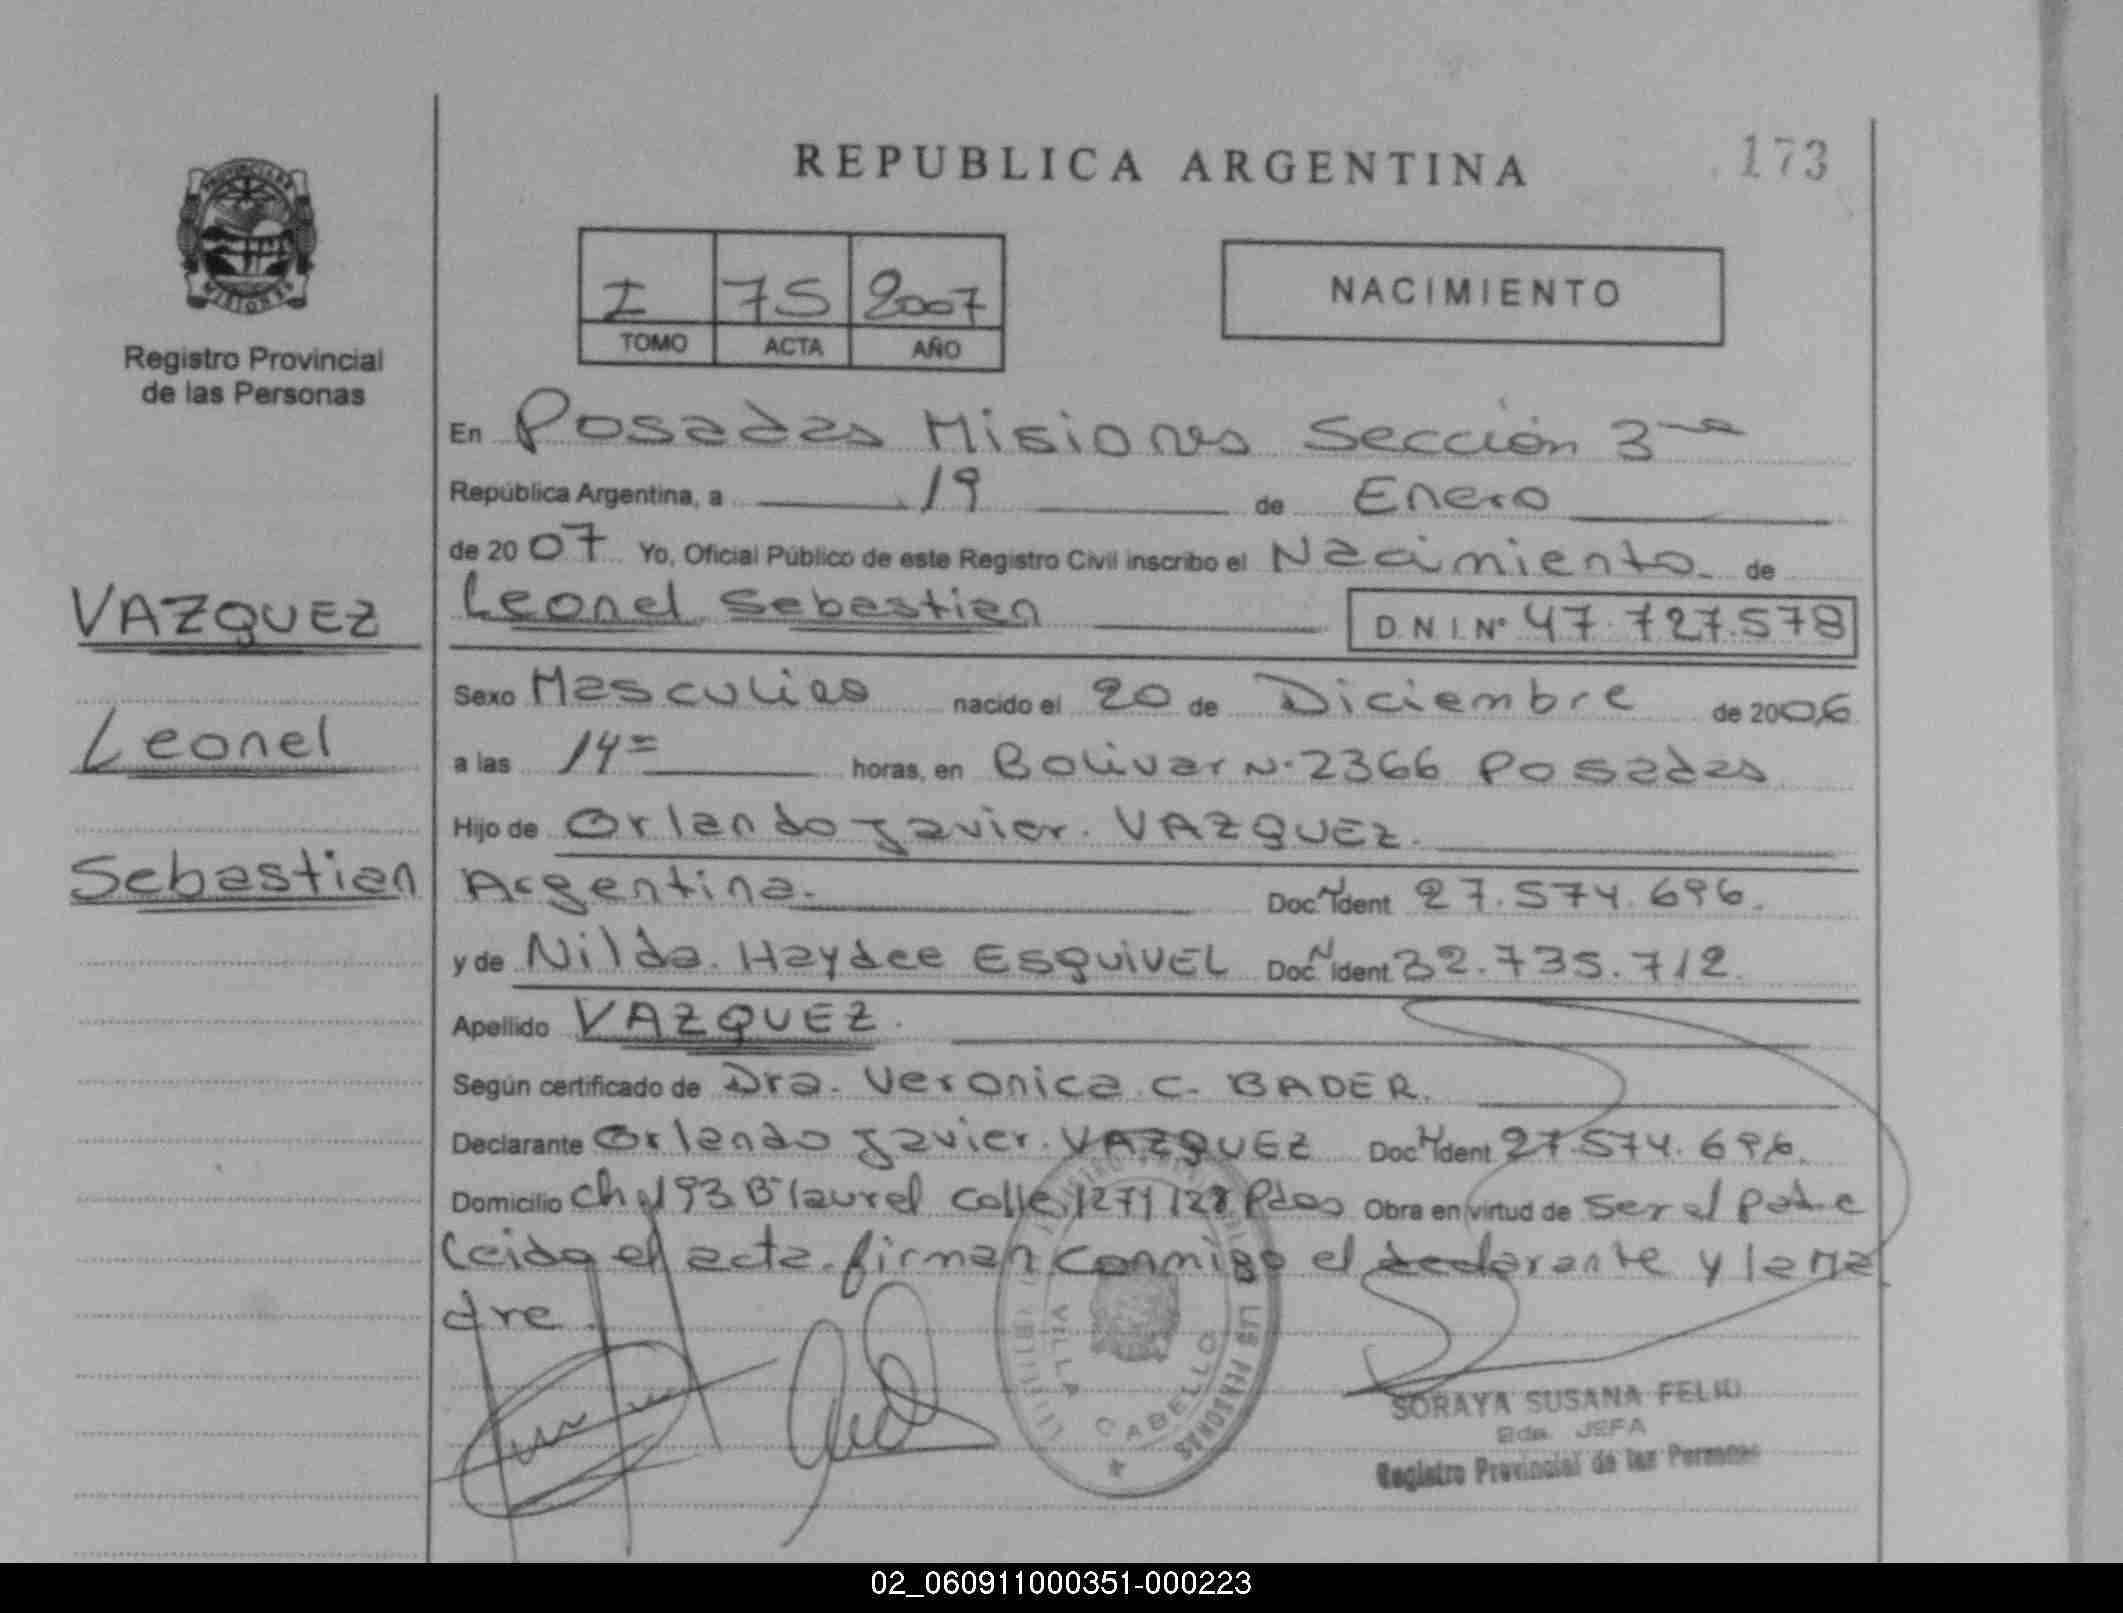 REPUBLICA ARGENTINA
173
PROVINCIA DE
MISIONES
Registro Provincial
de las Personas
I 75 2007
TOMO ACTA AÑO
NACIMIENTO
En Posadas Misiones Sección 3ra
República Argentina, a 19 de Enero
de 2007 Yo, Oficial Público de este Registro Civil inscribo el Nacimiento de
VAZQUEZ
Leonel
Sebastian
Leonel Sebastian D N I Nº 47.727.578
Sexo Masculino nacido el 20 de Diciembre de 2006
a las 14= horas, en Bolivar N. 2366 Posadas
Hijo de Orlando Javier. VAZQUEZ.
Argentina. Doc. N Ident 27.574.696.
y de Nilda. Haydee ESQUIVEL Doc. N Ident 32.735.712.
Apellido VAZQUEZ.
Según certificado de Dra. Veronica. C. BADER.
Declarante Orlando Javier. VAZQUEZ Doc. N Ident 27.574.696.
Domicilio Ch 193 Bº laurel calle 127 y 128 Pdas Obra en virtud de ser el padre
Leida el acta. firman conmigo el declarante y la ma
dre.
VILLA CABELLO
LAS PERSONAS
SORAYA SUSANA FELIU
2da. JEFA
Registro Provincial de las Personas
02_060911000351-000223